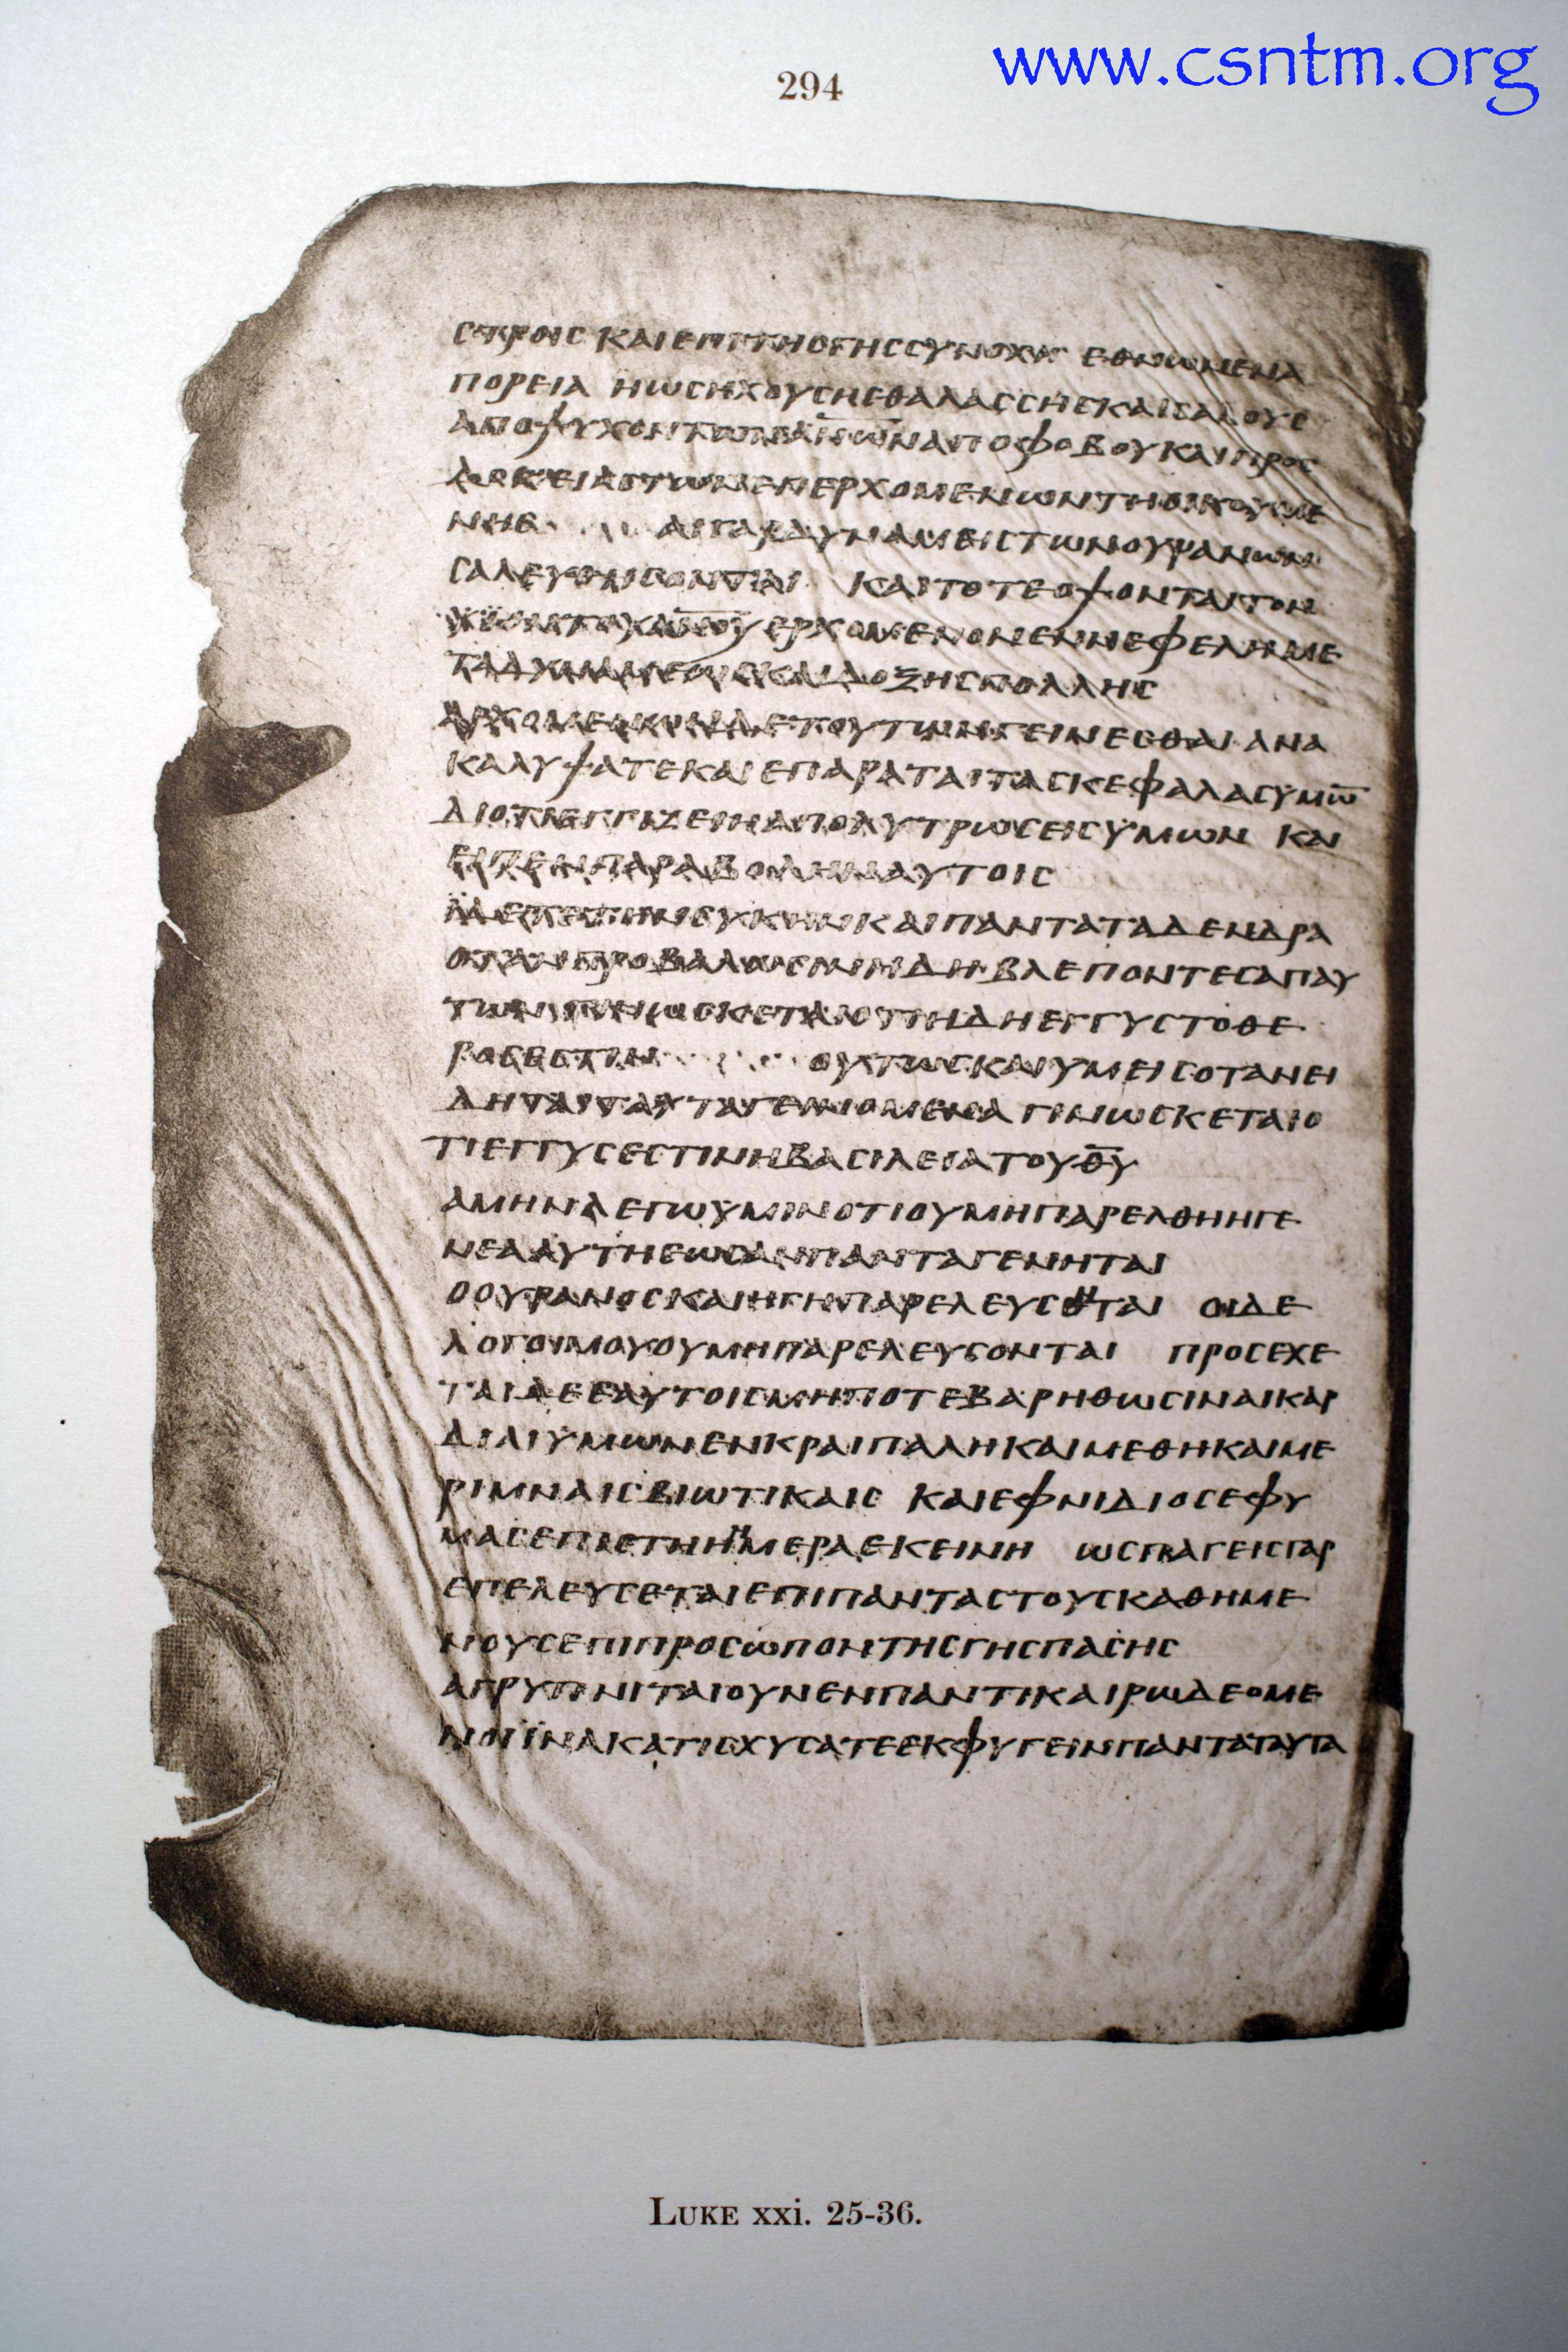 www.csntm.org
294
ϹΤΡΟΙϹ ΚΑΙ ΕΠΙ ΤΗϹ ΓΗϹ ϹΥΝΟΧΗ ΕΘΝΩΝ ΕΝ Α
ΠΟΡΕΙΑ ΗΩϹ ΗΧΟΥϹΗϹ ΘΑΛΑϹϹΗϹ ΚΑΙ ϹΑΛΟΥϹ
ΑΠΟΨΥΧΟΝΤΩΝ Α̅Ν̅Ω̅Ν̅ ΑΠΟ ΦΟΒΟΥ ΚΑΙ ΠΡΟϹ
ΔΟΚΕΙΑϹ ΤΩΝ ΕΠΕΡΧΟΜΕΝΩΝ ΤΗ ΟΙΚΟΥΜΕ
ΝΗ ΑΙ ΓΑΡ ΔΥΝΑΜΕΙϹ ΤΩΝ ΟΥΡΑΝΩΝ
ϹΑΛΕΥΘΗϹΟΝΤΑΙ ΚΑΙ ΤΟΤΕ ΟΨΟΝΤΑΙ ΤΟΝ
ΕΡΧΟΜΕΝΟΝ ΕΝ ΝΕΦΕΛΗ ΜΕ
ΤΑ ΚΑΙ ΔΟΞΗϹ ΠΟΛΛΗϹ
ΤΟΥΤΩΝ ΓΕΙΝΕϹΘΑΙ ΑΝΑ
ΚΑΛΥΨΑΤΕ ΚΑΙ ΕΠΑΡΑΤΑΙ ΤΑϹ ΚΕΦΑΛΑϹ ΥΜΩ̅
ΔΙΟΤΙ ΕΓΓΙΖΕΙ Η ΑΠΟΛΥΤΡΩϹΕΙϹ ΥΜΩΝ ΚΑΙ
ΕΙΠΕΝ ΠΑΡΑΒΟΛΗΝ ΑΥΤΟΙϹ
ϹΥΚΗΝ ΚΑΙ ΠΑΝΤΑ ΤΑ ΔΕΝΔΡΑ
ΟΤΑΝ ΠΡΟΒΑΛΩϹΙΝ ΗΔΗ ΒΛΕΠΟΝΤΕϹ ΑΠ ΑΥ
ΤΩΝ ΓΕΙΝΩϹΚΕΤΑΙ ΟΤΙ ΗΔΗ ΕΓΓΥϹ ΤΟ ΘΕ
ΡΟϹ ΕϹΤΙΝ ΟΥΤΩϹ ΚΑΙ ΥΜΕΙϹ ΟΤΑΝ ΕΙ
ΔΗΤΑΙ ΤΑΥΤΑ ΓΕΙΝΟΜΕΝΑ ΓΙΝΩϹΚΕΤΑΙ Ο
ΤΙ ΕΓΓΥϹ ΕϹΤΙΝ Η ΒΑϹΙΛΕΙΑ ΤΟΥ Θ̅Υ̅
ΑΜΗΝ ΛΕΓΩ ΥΜΙΝ ΟΤΙ ΟΥ ΜΗ ΠΑΡΕΛΘΗ Η ΓΕ
ΝΕΑ ΑΥΤΗ ΕΩϹ ΑΝ ΠΑΝΤΑ ΓΕΝΗΤΑΙ
Ο ΟΥΡΑΝΟϹ ΚΑΙ Η ΓΗ ΠΑΡΕΛΕΥϹΟΝΤΑΙ ΟΙ ΔΕ
ΛΟΓΟΙ ΜΟΥ ΟΥ ΜΗ ΠΑΡΕΛΕΥϹΟΝΤΑΙ ΠΡΟϹΕΧΕ
ΤΑΙ ΔΕ ΕΑΥΤΟΙϹ ΜΗΠΟΤΕ ΒΑΡΗΘΩϹΙΝ ΑΙ ΚΑΡ
ΔΙΑΙ ΥΜΩΝ ΕΝ ΚΡΑΙΠΑΛΗ ΚΑΙ ΜΕΘΗ ΚΑΙ ΜΕ
ΡΙΜΝΑΙϹ ΒΙΩΤΙΚΑΙϹ ΚΑΙ ΕΦΝΙΔΙΟϹ ΕΦ Υ
ΜΑϹ ΕΠΙϹΤΗ Η ΗΜΕΡΑ ΕΚΕΙΝΗ ΩϹ ΠΑΓΕΙϹ ΓΑΡ
ΕΠΕΛΕΥϹΕΤΑΙ ΕΠΙ ΠΑΝΤΑϹ ΤΟΥϹ ΚΑΘΗΜΕ
ΝΟΥϹ ΕΠΙ ΠΡΟϹΩΠΟΝ ΤΗϹ ΓΗϹ ΠΑϹΗϹ
ΑΓΡΥΠΝΙΤΑΙ ΟΥΝ ΕΝ ΠΑΝΤΙ ΚΑΙΡΩ ΔΕΟΜΕ
ΝΟΙ ΪΝΑ ΚΑΤΙϹΧΥϹΑΤΕ ΕΚΦΥΓΕΙΝ ΠΑΝΤΑ ΤΑΥΤΑ
LUKE xxi. 25-36.